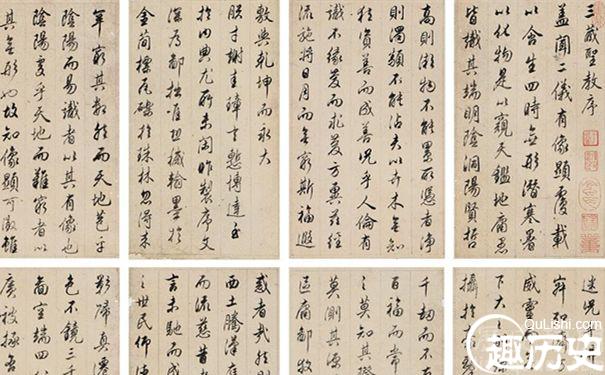 三藏聖教序
蓋聞二儀有像顯覆載
以含生四時無形潛寒暑
以化物是以窺天鑑地庸愚
皆識其端明陰洞陽賢哲
高則微物不能累所憑者淨
則濁類不能沾夫以卉木無知
猶資善而成善況乎人倫有
識不緣慶而求慶方冀茲經
流施將日月而無窮斯福遐
敷與乾坤而永大
朕才謝珪璋言慙博達至
於內典尤所未閑昨製序文
深為鄙拙唯恐穢翰墨於
金簡標瓦礫於珠林忽得來
罕窮其數然而天地苞乎
陰陽而易識者以其有像也
陰陽處乎天地而難窮者以
其無形也故知像顯可徵雖
迷況乎
威靈
下大
攝於
千劫而不
百福而
之莫知其際
莫測其源
區庸鄙投
惑者哉然則
西土騰漢庭
而流慈昔
言未馳而成
之世民仰德
影歸真遷
色不鏡三千
圖空端四八
廣被拯含
QuLishi.com
趣历史